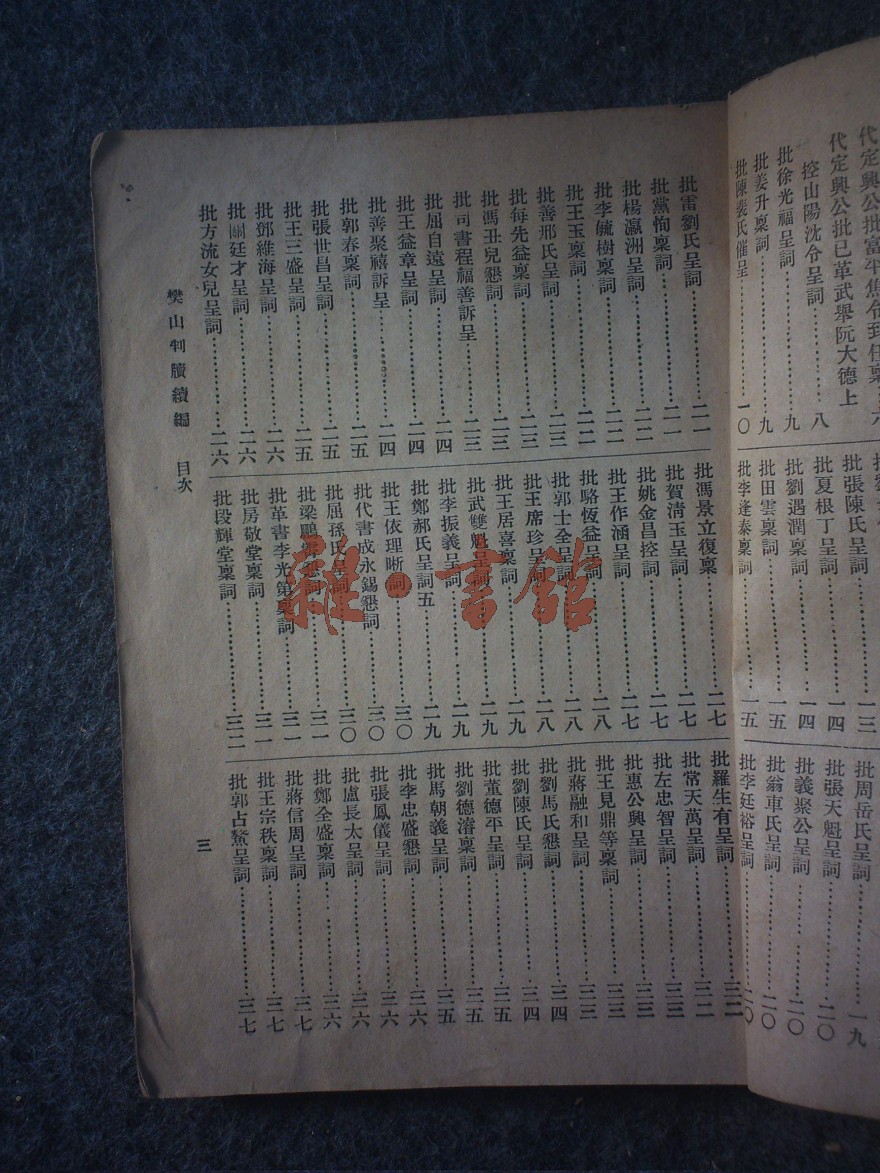 代定興公批富平焦令到任稟
代定興公批已革武舉阮大德上
控山陽沈令呈詞……八
批徐光福呈詞……九
批姜升稟詞……九
批陳裴氏催呈……一〇
批張陳氏呈詞……一三
批夏根丁呈詞……一四
批劉遇潤稟詞……一四
批田雲稟詞……一五
批李逢泰稟詞……一五
批周岳氏呈詞……一九
批張天魁呈詞……二〇
批義聚公呈詞……二〇
批翁車氏呈詞……二〇
批李廷裕呈詞……二〇
批雷劉氏呈詞……二一
批黨恂稟詞……二一
批楊瀛洲呈詞……二二
批李毓樹稟詞……二二
批王玉稟詞……二二
批善邢氏呈詞……二三
批每先益稟詞……二三
批馮丑兒懇詞……二三
批司書程福善訴呈……二三
批屈自遠呈詞……二四
批王益章呈詞……二四
批善聚禧訴呈……二四
批郭春稟詞……二五
批張世昌呈詞……二五
批王三盛呈詞……二五
批鄧維海呈詞……二六
批關廷才呈詞……二六
批方流女兒呈詞……二六
批馮景立復稟……二七
批賀清玉呈詞……二七
批姚金昌控詞……二七
批王作涵呈詞……二七
批駱恆益呈詞……二八
批郭士全呈詞……二八
批王席珍呈詞……二八
批王居喜稟詞……二九
批武雙魁呈詞……二九
批李振義呈詞……二九
批鄭郝氏呈詞五……二九
批王依理晰詞……三〇
批代書成永錫懇詞……三〇
批屈孫氏呈詞……三〇
批梁鵬……三一
批革書李光第 詞……三一
批房敬堂稟詞……三一
批段輝堂稟詞……三二
批羅生有呈詞……三二
批常天萬呈詞……三二
批左忠智呈詞……三三
批惠公興呈詞……三三
批王見鼎等稟詞……三三
批蔣融和呈詞……三四
批劉馬氏懇詞……三四
批劉陳氏呈詞……三四
批董德平呈詞……三五
批劉德濬稟詞……三五
批馬朝義呈詞……三五
批李忠盛懇詞……三六
批張鳳儀呈詞……三六
批盧長太呈詞……三六
批鄭全盛稟詞……三六
批蔣信周呈詞……三七
批王宗秩稟詞……三七
批郭占鰲呈詞……三七
樊山判牘續編 目次
三
雜·書館